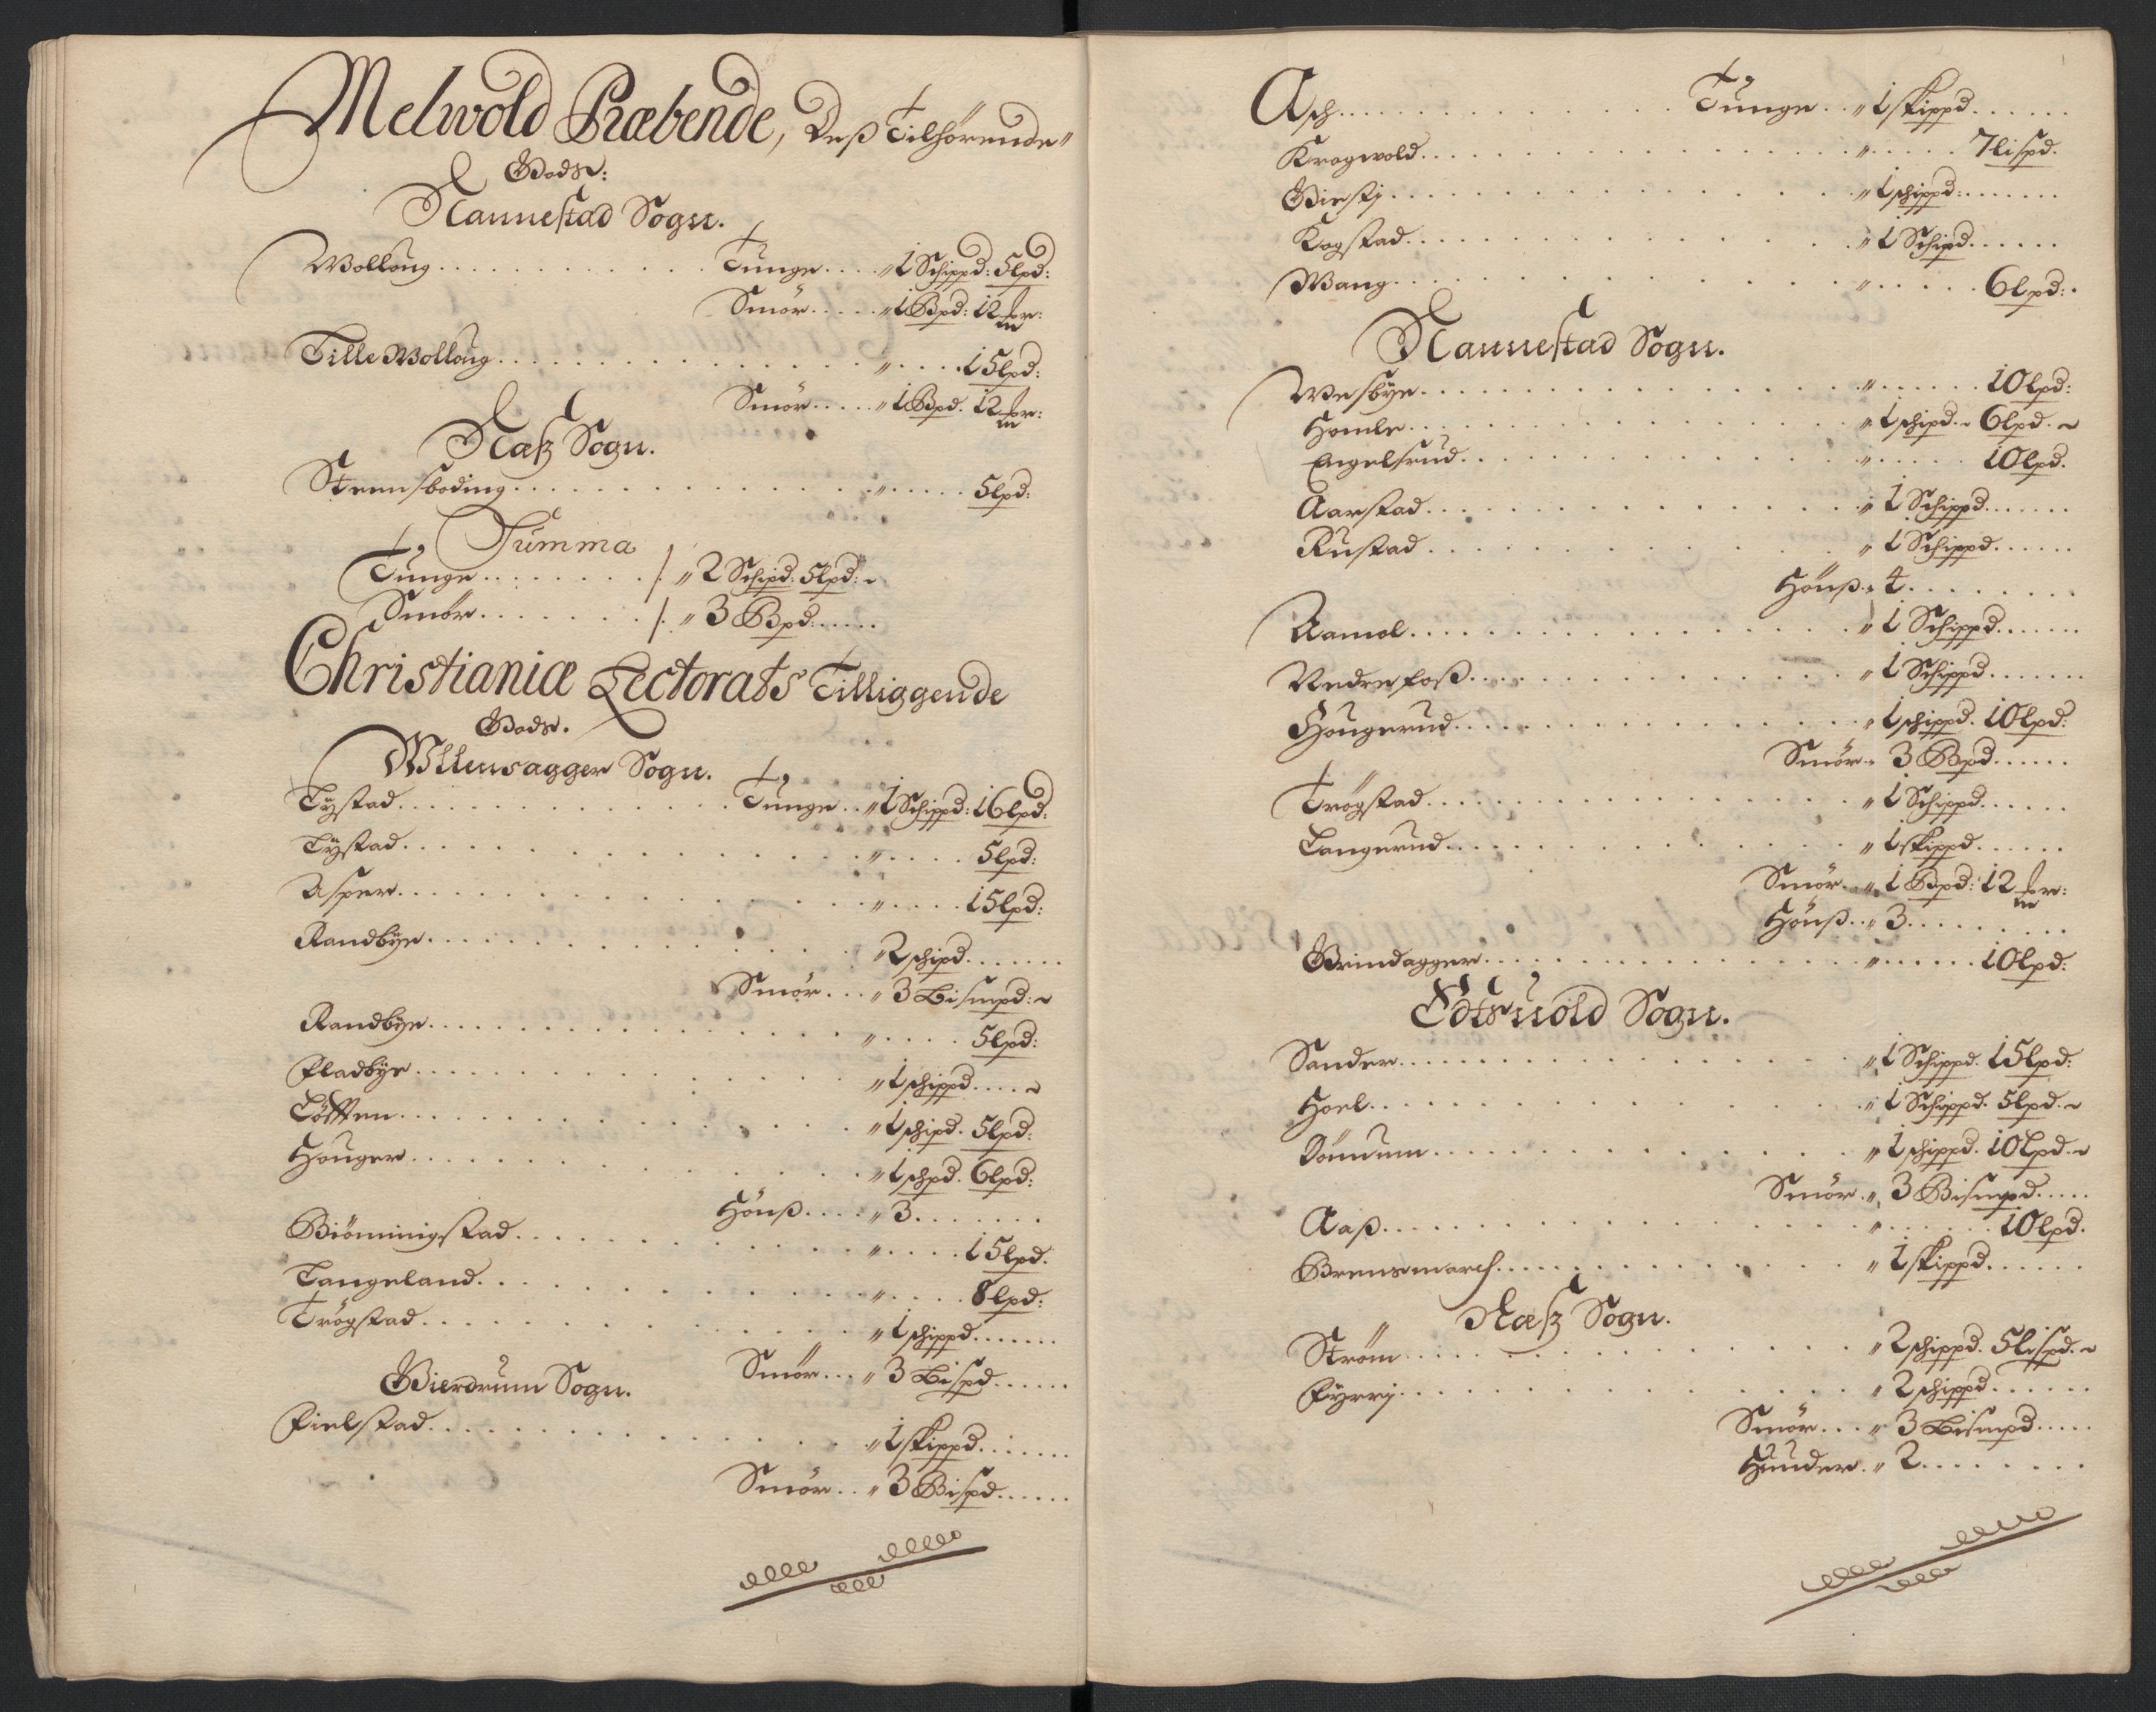 Melwold Præbende, Deß Tilhørende
Gods:
Nannestad Sogn.
Wolloug . . . Tunge . . . 1 Schippd: 5 lpd:
Smør . . . 1 Bpd: 12 mr:
Lille Wolloug . . . 15 lpd:
Smør . . . 1 Bpd. 12 mr:
Næß Sogn.
Steensboding . . . 5 lpd:
Summa
Tunge . . . /. 2 Schipd: 5 lpd:
Smør . . . /. 3 Bpd: . . .
Christianiæ Lectorats Tilliggende
Gods.
Ullensagger Sogn.
Tystad . . . Tunge . . 1 Schippd: 16 lpd:
Tystad . . . 5 lpd:
Asper . . . 15 lpd:
Randbye . . . 2 schipd . . .
Smør . . . 3 Bismpd:
Randbye . . . 5 lpd:
Fladbye . . . 1 schippd . . .
Tøfften . . . 1 schipd. 5 lpd:
Houger . . . 1 schpd. 6 lpd:
Hønß . . . 3 . . .
Biømmigstad . . . 15 lpd.
Langeland . . . 8 lpd:
Trøgstad . . . 1 schippd . . .
Smør . . . 3 Bispd . . .
Gierdrum Sogn.
Fielstad . . . 1 skippd . . .
Smør . . . 3 Bispd . . .
Asch . . . Tunge . . 1 skippd . . .
Krogwold . . . 7 lispd.
Giestj . . . 1 schippd: . . .
Kogstad . . . 1 Schipd . . .
Wang . . . 6 lpd:
Nannestad Sogn.
Wesbye . . . 10 lpd:
Homle . . . 1 schipd. 6 lpd.
Engelsrud . . . 10 lpd.
Aarstad . . . 1 Schippd . . .
Rustad . . . 1 Schippd . . .
Hønß . 4 . . .
Aamol . . . 1 Schippd . . .
Nedrefoß . . . 1 Schippd . . .
Hougerud . . . 1 schippd. 10 lpd:
Smør . 3 Bpd . . .
Trøgstad . . . 1 Schippd . . .
Langerud . . . 1 skippd . . .
Smør . . 1 Bpd: 12 mr:
Hønß . . 3 . . .
Grindagger . . . 10 lpd:
Edtsuold Sogn.
Sander . . . 1 Schippd. 15 lpd:
Hoel . . . 1 Schippd. 5 lpd.
Dønnum . . . 1 schippd. 10 lpd.
Smør . 3 Bismpd . . .
Aaß . . . 10 lpd.
Grensmarch . . . 1 skippd . . .
Næß Sogn.
Strøm . . . 2 schippd. 5 lispd.
Fyrrj . . . 2 schippd . . .
Smør . . . 3 Bismpd . . .
Hunder . 2 . . .